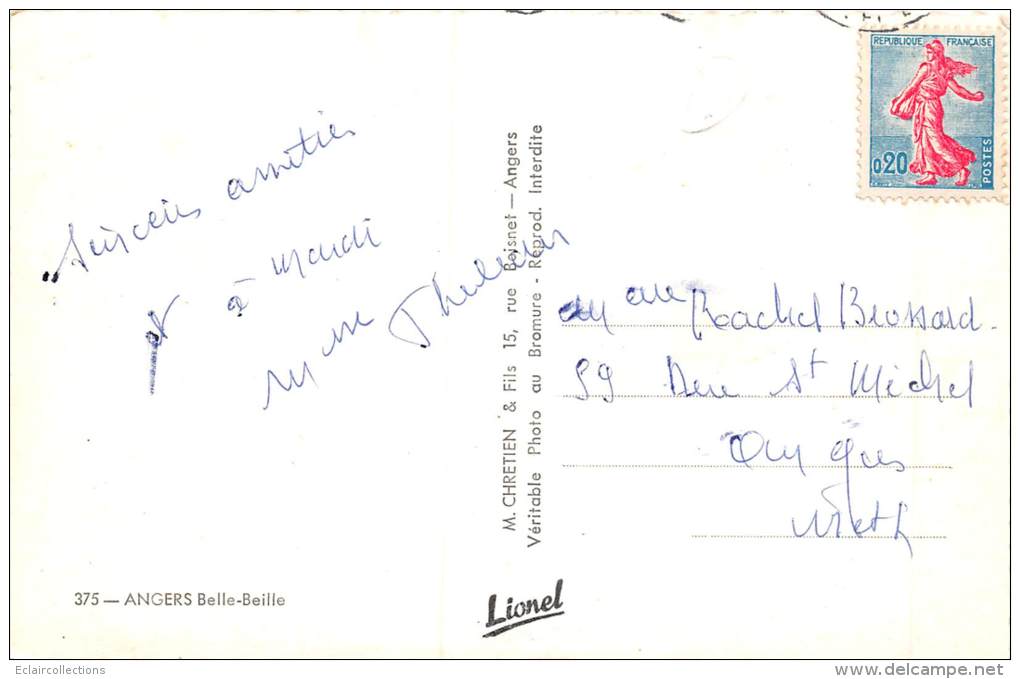 RÉPUBLIQUE FRANÇAISE
0,20
POSTES
amitiés
et à mardi
Mme
M. CHRETIEN & Fils 15, rue Boisnet — Angers
Véritable Photo au Bromure - Reprod. Interdite
Rachel Brossard
59 St Michel
375 — ANGERS Belle-Beille
Lionel
Eclaircollections
www.delcampe.net